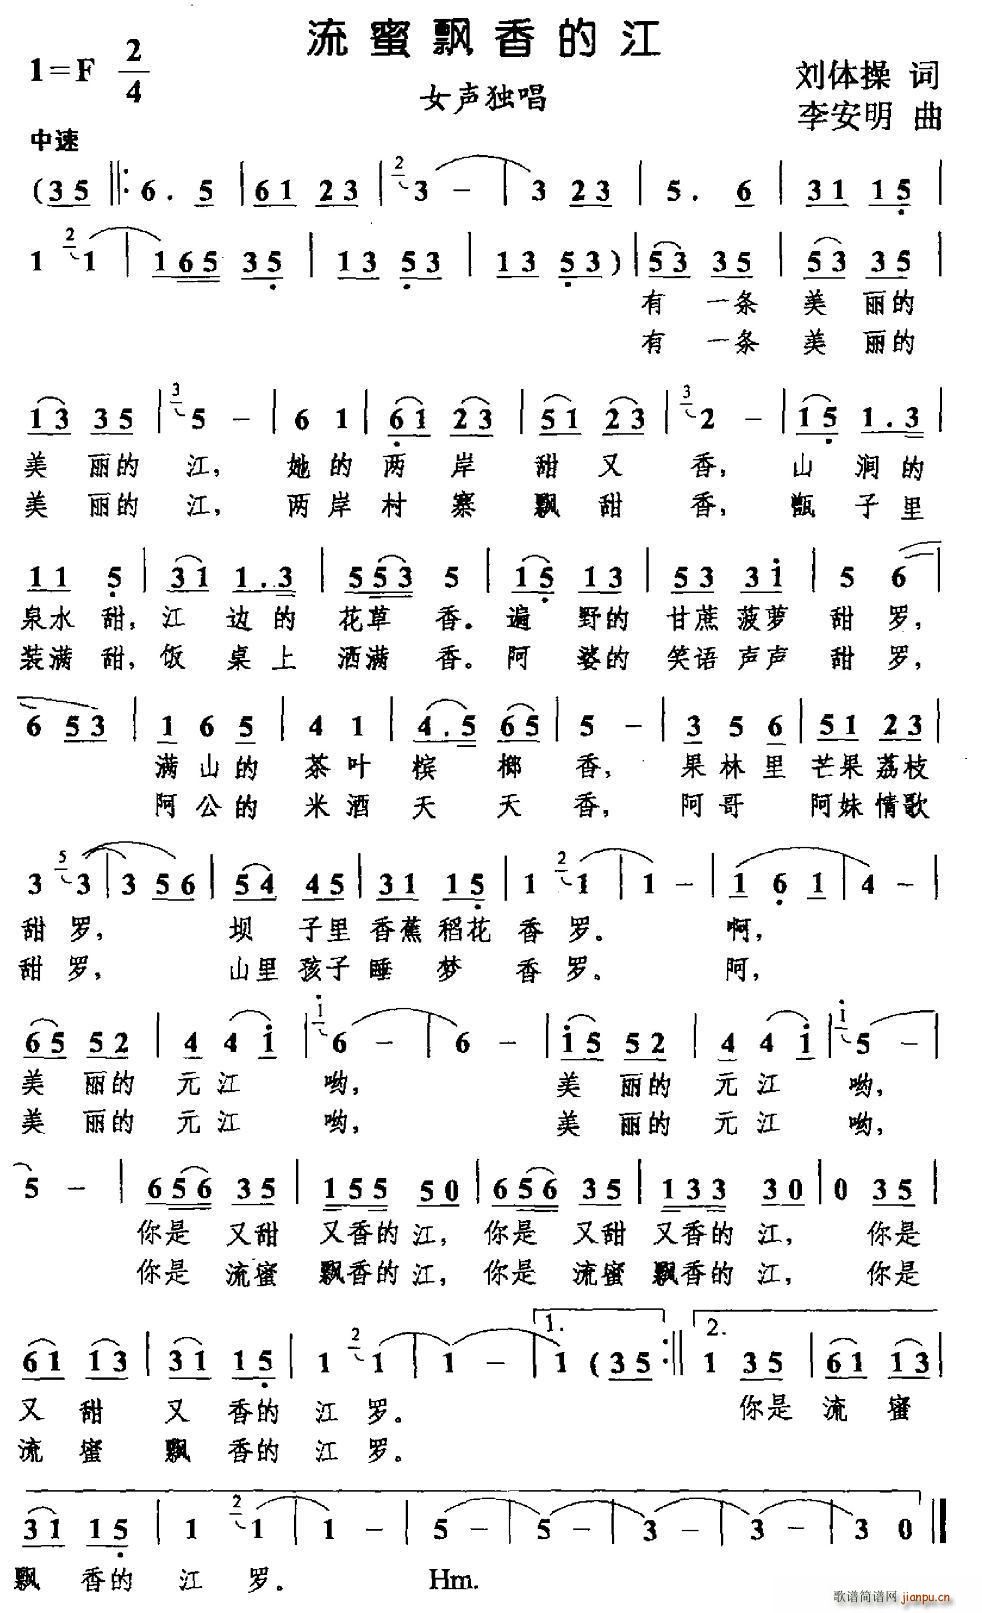 流蜜飘香的江
1=F 2/4
女声独唱
刘体操 词
李安明 曲
中速
(35 ‖: 6. 5 | 61 23 | 2 3 - | 3 23 | 5. 6 | 31 15 |
1 2 1 | 165 35 | 13 53 | 13 53 ) | 53 35 | 53 35 |
有 一条 美 丽的
有 一条 美 丽的
13 35 | 3 5 - | 6 1 | 61 23 | 51 23 | 3 2 - | 15 1.3 |
美 丽的 江, 她的 两 岸 甜 又 香, 山 涧的
美 丽的 江, 两岸 村 寨 飘 甜 香, 甑 子里
11 5 | 31 1.3 | 553 5 | 15 13 | 53 3i | 5 6 |
泉水 甜, 江 边的 花草 香。 遍 野的 甘蔗 菠萝 甜 罗,
装满 甜, 饭 桌上 洒满 香。 阿 婆的 笑语 声声 甜 罗,
6 53 | 1 6 5 | 4 1 | 4.5 65 | 5 - | 3 5 6 | 51 23 |
满山的 茶叶 槟 榔 香, 果林里 芒果 荔枝
阿公的 米酒 天 天 香, 阿哥 阿妹 情歌
3 5 3 | 3 56 | 54 45 | 31 15 | 1 2 1 | 1 - | 1 6 1 | 4 - |
甜 罗, 坝 子里 香蕉 稻花 香 罗。 啊,
甜 罗, 山里 孩子 睡 梦 香 罗。 阿,
65 52 | 4 4i | i 6 - | 6 - | i5 52 | 4 4i | i 5 - |
美 丽的 元江 哟, 美 丽的 元江 哟,
美 丽的 元江 哟, 美 丽的 元江 哟,
5 - | 656 35 | 155 50 | 656 35 | 133 30 | 0 35 |
你是 又甜 又香的 江, 你是 又甜 又香的 江, 你是
你是 流蜜 飘香的 江, 你是 流蜜 飘香的 江, 你是
1. 2.
61 13 | 31 15 | 1 2 1 | 1 - | 1 (35 :‖ 1 35 | 61 13 |
又 甜 又 香的 江 罗。 你是 流 蜜
流 蜜 飘 香的 江 罗。
31 15 | 1 2 1 | 1 - | 5 - | 5 - | 3 - | 3 - | 3 0 ‖
飘 香的 江 罗。 Hm.
歌谱简谱网
jianpu.cn